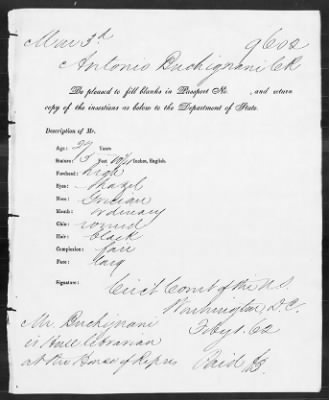 Mar 3d 9602
Antonio Buchignani
Be pleased to fill blanks in Passport No. , and return
copy of the insertions as below to the Department of State.
Description of Mr.
Age: 27 Years
Stature: 5 Feet 10½ Inches, English.
Forehead: high
Eyes: Hazel
Nose: Grecian
Mouth: ordinary
Chin: round
Hair: black
Complexion: fair
Face: long
Signature:
Circt Court of the U.S.
Washington, D.C.
Feby 1. 62
Mr Buchignani
is Asst librarian
at the House of Reprs Paid